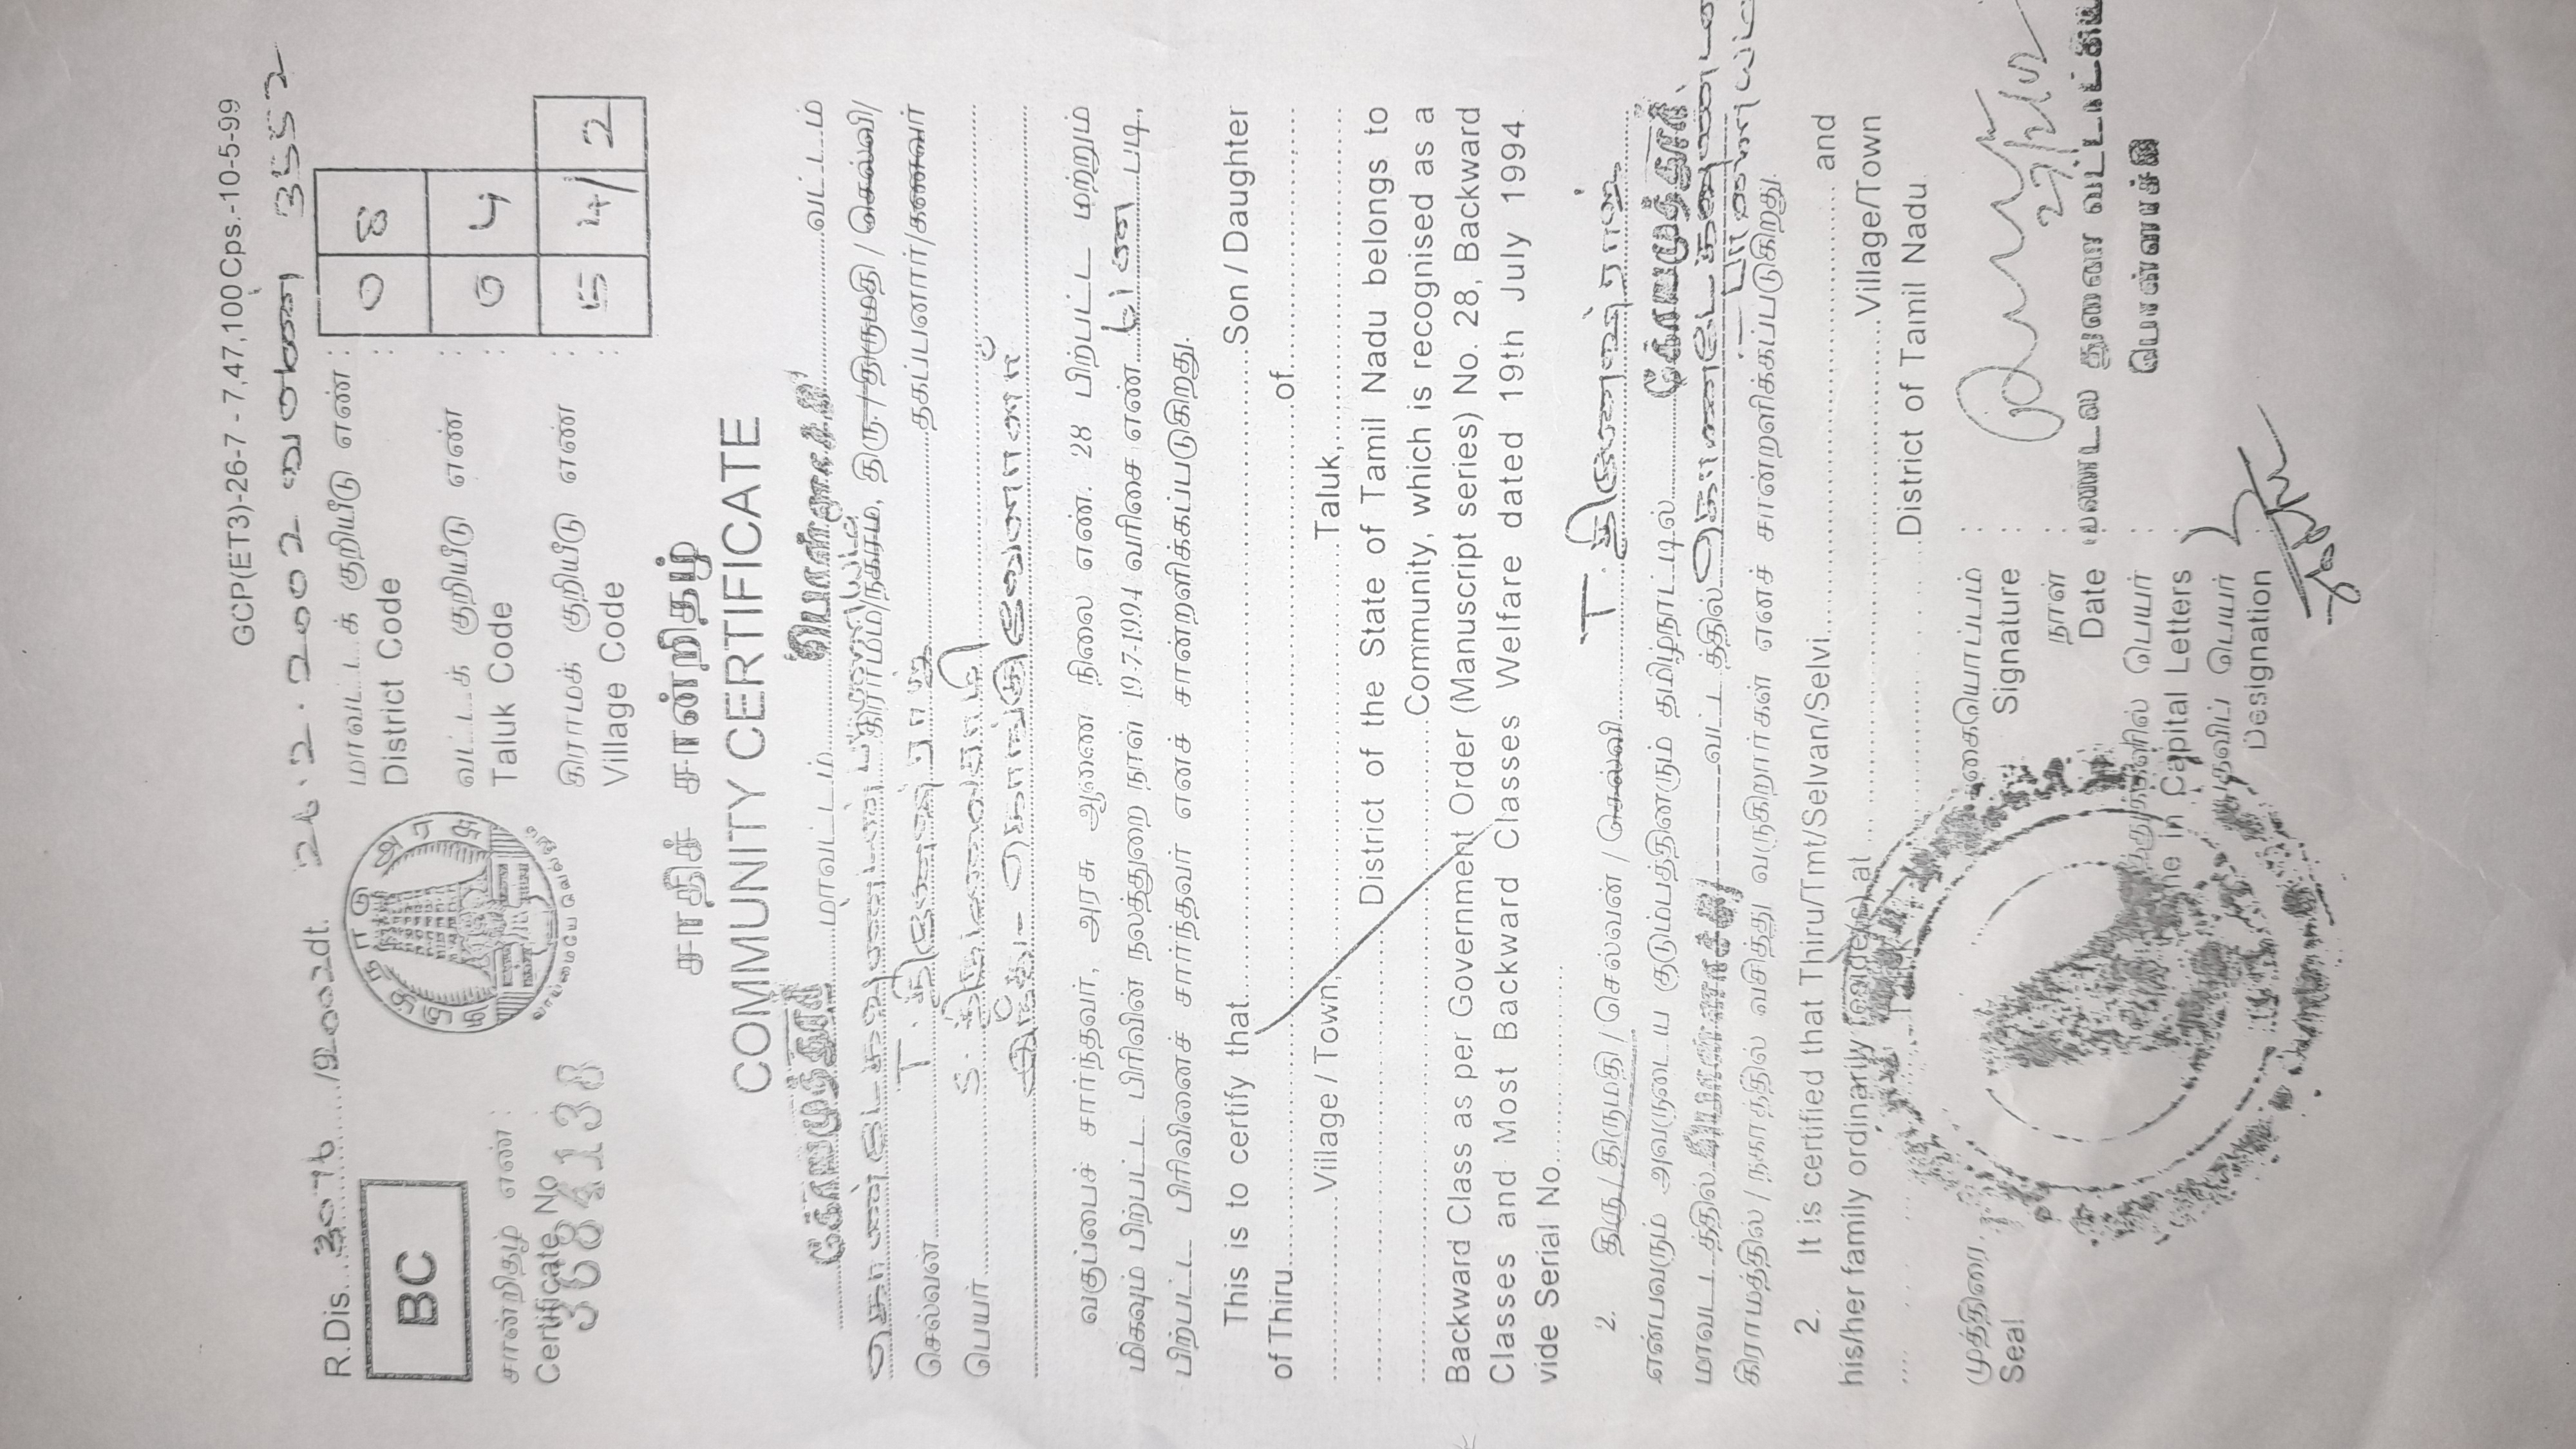 GCP(ET3)-26-7 - 7,47,100 Cps.-10-5-99
R.Dis. 3076 /2002dt. 26.2.2002 3552
BC
தமிழ்நாடு அரசு
வாய்மையே வெல்லும்
மாவட்டக் குறியீடு எண் :
District Code : 0 8
வட்டக் குறியீடு எண் :
Taluk Code : 0 4
சான்றிதழ் எண் :
Certificate No
3684138
கிராமக் குறியீடு எண் :
Village Code : 5 4/ 2
சாதிச் சான்றிதழ்
COMMUNITY CERTIFICATE
கோயமுத்தூர் மாவட்டம் பொள்ளாச்சி வட்டம்
கிராமம்/நகரம், திரு / திருமதி / செல்வி/
செல்வன் T. தினேஷ் ராஜ் தகப்பனார்/கணவர்
பெயர் S.
இந்து- கொங்கு வேளாளர்
வகுப்பைச் சார்ந்தவர், அரசு ஆணை நிலை எண். 28 பிற்பட்ட மற்றும்
மிகவும் பிற்பட்ட பிரிவின் நலத்துறை நாள் 19-7-1994 வரிசை எண். படி,
பிற்பட்ட பிரிவினைச் சார்ந்தவர் எனச் சான்றளிக்கப்படுகிறது.
This is to certify that Son / Daughter
of Thiru of
Village / Town, Taluk,
District of the State of Tamil Nadu belongs to
Community, which is recognised as a
Backward Class as per Government Order (Manuscript series) No. 28, Backward
Classes and Most Backward Classes Welfare dated 19th July 1994
vide Serial No
2. திரு / திருமதி / செல்வன் / செல்வி T. தினேஷ் ராஜ்
என்பவரும் அவருடைய குடும்பத்தினரும் தமிழ்நாட்டில் கோயமுத்தூர்
மாவட்டத்தில் பொள்ளாச்சி வட்டத்தில்
கிராமத்தில் / நகரத்தில் வசித்து வருகிறார்கள் எனச் சான்றளிக்கப்படுகிறது.
2. It is certified that Thiru/Tmt/Selvan/Selvi and
his/her family ordinarily reside(s) at Village/Town
District of Tamil Nadu
முத்திரை
Seal
கையொப்பம் :
Signature :
நாள் :
Date : மண்டல துணை வட்டாட்சியர்
பெயர் : பொள்ளாச்சி
in Capital Letters :
பதவிப் பெயர் :
Designation